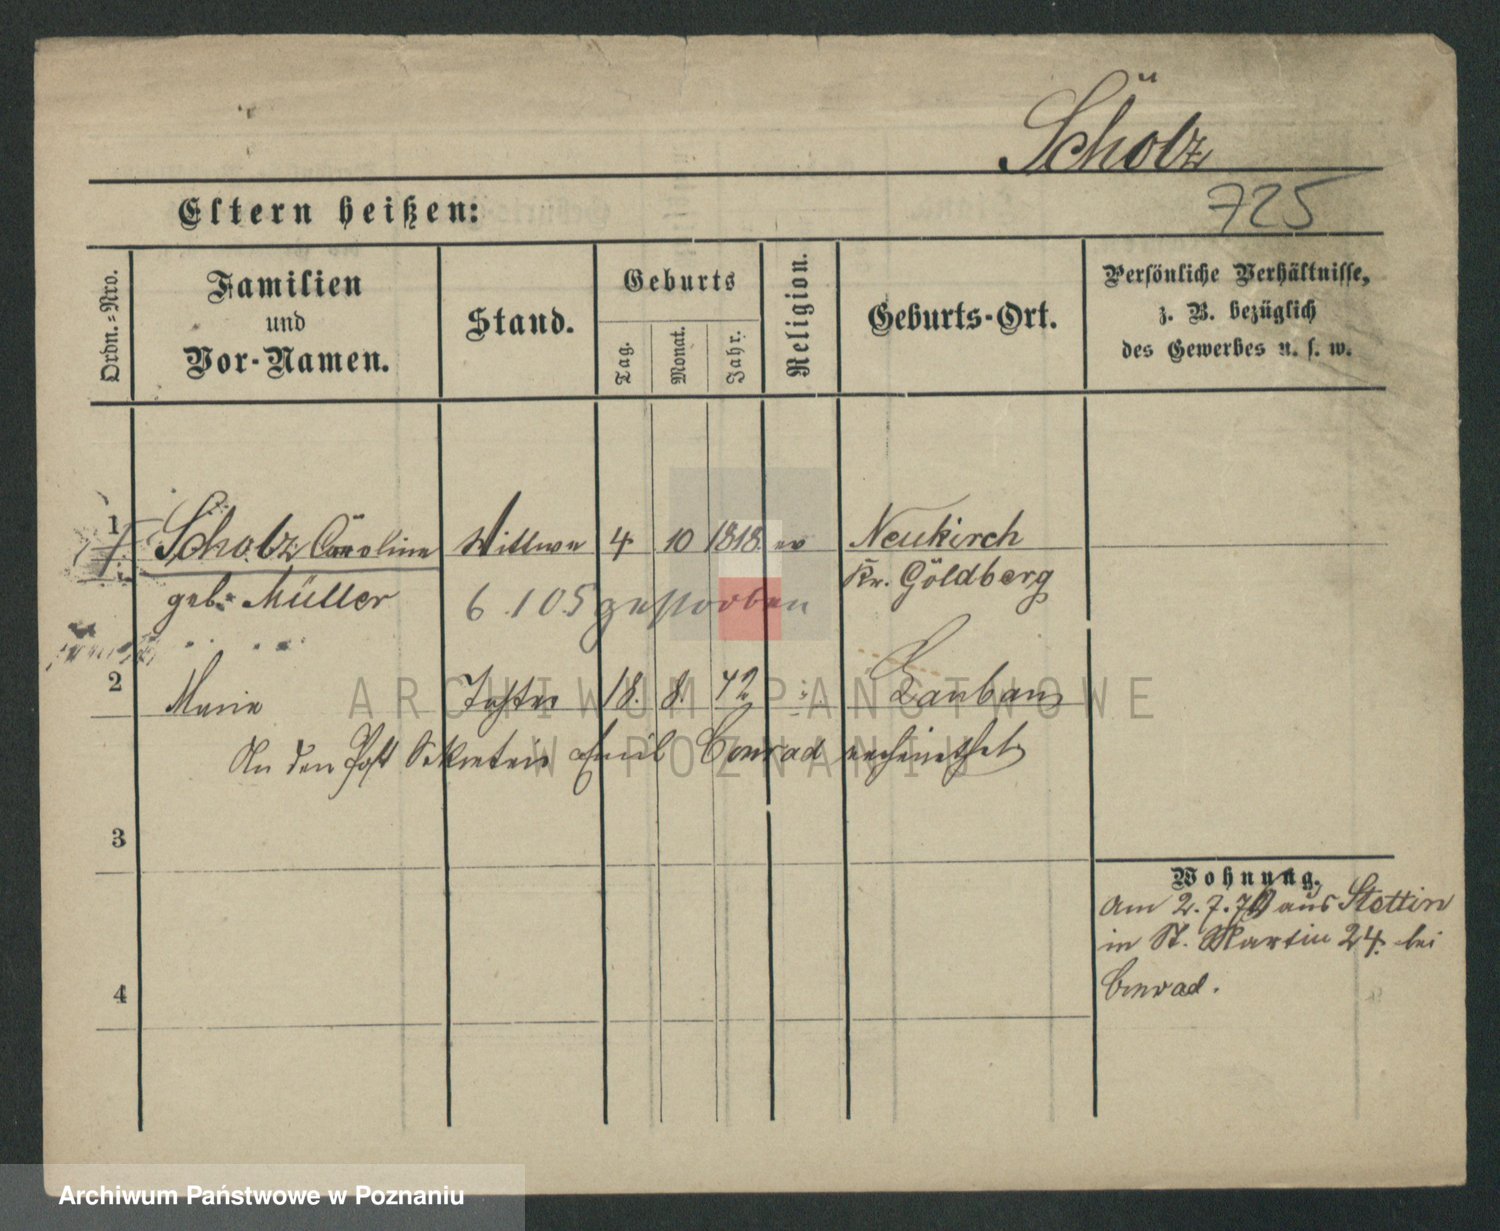 Scholz
725
Eltern heißen:
Ordn.-Nro.
Familien
und
Vor-Namen.
Stand.
Geburts
Tag.
Monat.
Jahr.
Religion.
Geburts-Ort.
Persönliche Verhältnisse,
z. B. bezüglich
des Gewerbes u. s. w.
1 Scholz Caroline Wittwe 4 10 1818. ev Neukirch
Kr. Goldberg
geb. Müller 6 1 05 gestorben
2 Marie Tochter 18. 8. 42 Lauban
An den Post Sekretair Emil Conrad verheirathet
3
4
Wohnung.
Am 2. 7. 70 aus Stettin
in St. Martin 24. bei
Conrad.
ARCHIWUM PAŃSTWOWE
W POZNANIU
Archiwum Państwowe w Poznaniu